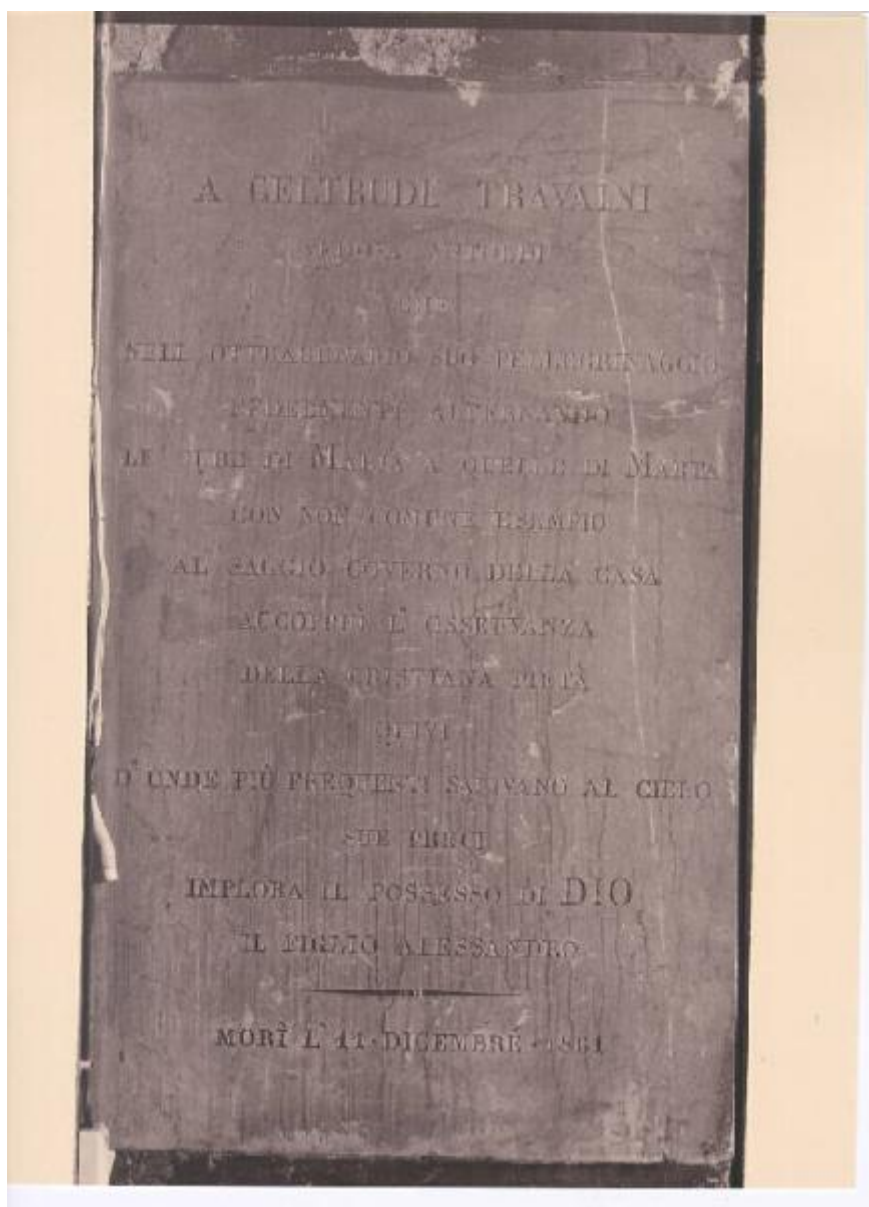 A GELTRUDE TRAVAINI
CHE
NELL' OTTUAGENARIO SUO PELLEGRINAGGIO
FEDELMENTE ALTERNANDO
LE CURE DI MARIA A QUELLE DI MARTA
CON NON COMUNE ESEMPIO
AL SAGGIO GOVERNO DELLA CASA
ACCOPPIÒ L' OSSERVANZA
DELLA CRISTIANA PIETÀ
QUIVI
D' ONDE PIÙ FREQUENTI SALIVANO AL CIELO
SUE PRECI
IMPLORA IL POSSESSO DI DIO
IL FIGLIO ALESSANDRO
MORÌ L' 11 DICEMBRE 1861